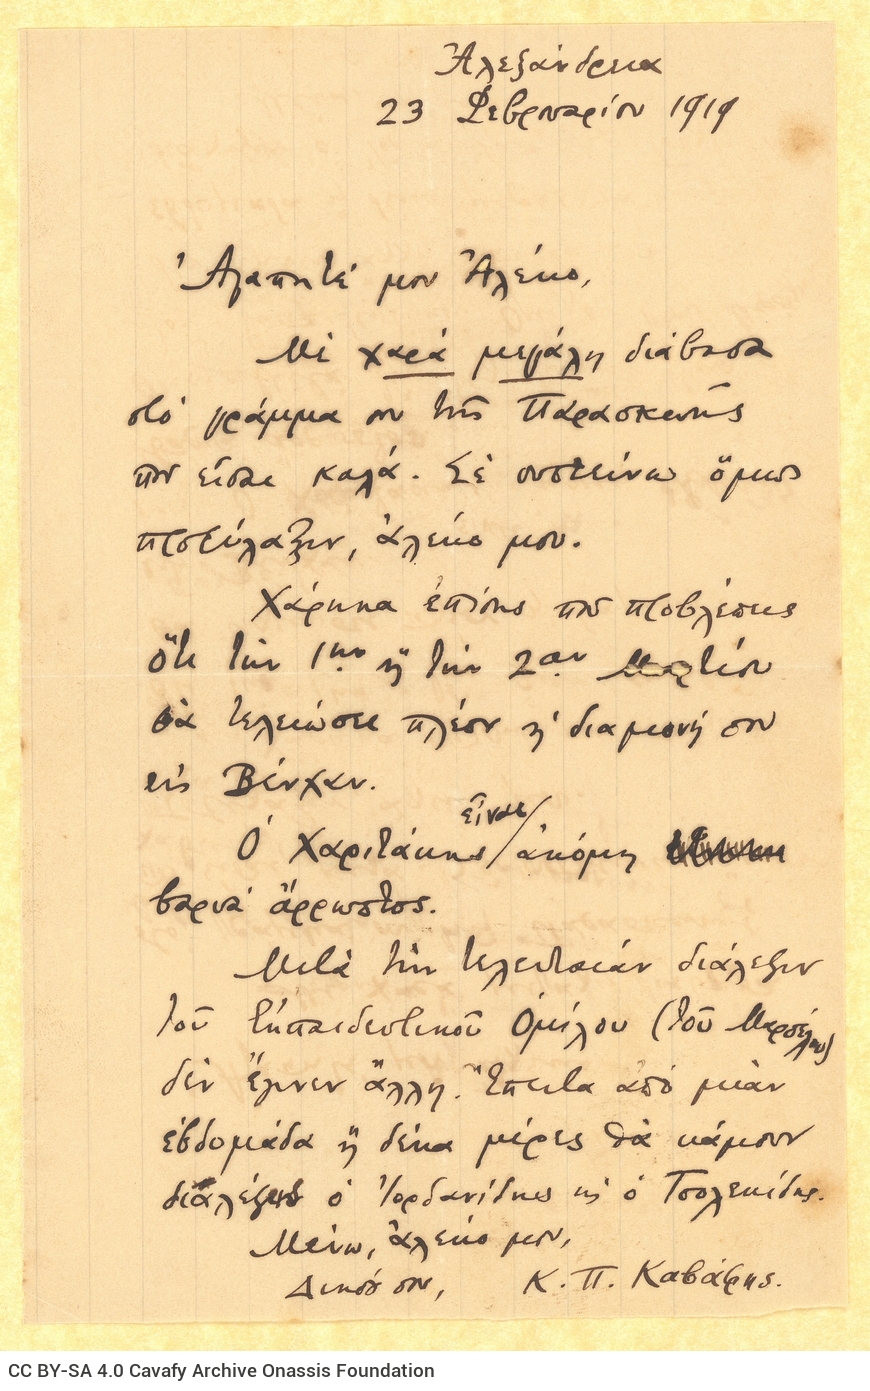 Ἀλεξάνδρεια
23 Φεβρουαρίου 1919
Ἀγαπητέ μου Ἀλέκο,
Μὲ χαρὰ μεγάλη διάβασα
στὸ γράμμα σου τῆς Παρασκευῆς
ποῦ εἶσαι καλά. Σὲ συσταίνω ὅμως
προφύλαξιν, Ἀλέκο μου.
Χάρηκα ἐπίσης ποῦ προβλέπεις
ὅτι τὴν 1ην ἢ τὴν 2αν Μαρτίου
θὰ τελειώσει πλέον ἡ διαμονή σου
εἰς Βένχαν.
Ὁ Χαριτάκης εἶναι ἀκόμη
βαρυὰ ἄρρωστος.
Μετὰ τὴν τελευταίαν διάλεξιν
τοῦ Ἐκπαιδευτικοῦ Ὁμίλου (τοῦ Μαρσέλου)
δὲν ἔγινεν ἄλλη. Ἔπειτα ἀπὸ μιὰν
ἑβδομάδα ἢ δέκα μέρες θὰ κάμουν
διαλέξεις ὁ Ἰορδανίδης κι ὁ Τσολεκίδης.
Μένω, Ἀλέκο μου,
Δικός σου, Κ. Π. Καβάφης.
CC BY-SA 4.0 Cavafy Archive Onassis Foundation